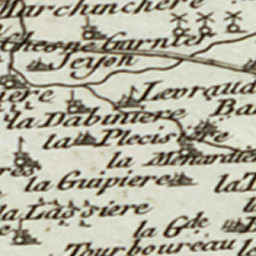 Marchinchere
Chesne Garnier
Jeyon
Levraud
la Dabiniere
Ba
la Plecis
la Menardie
la Guipiere
la T
la Lassiere
la Gde
Tourboureau